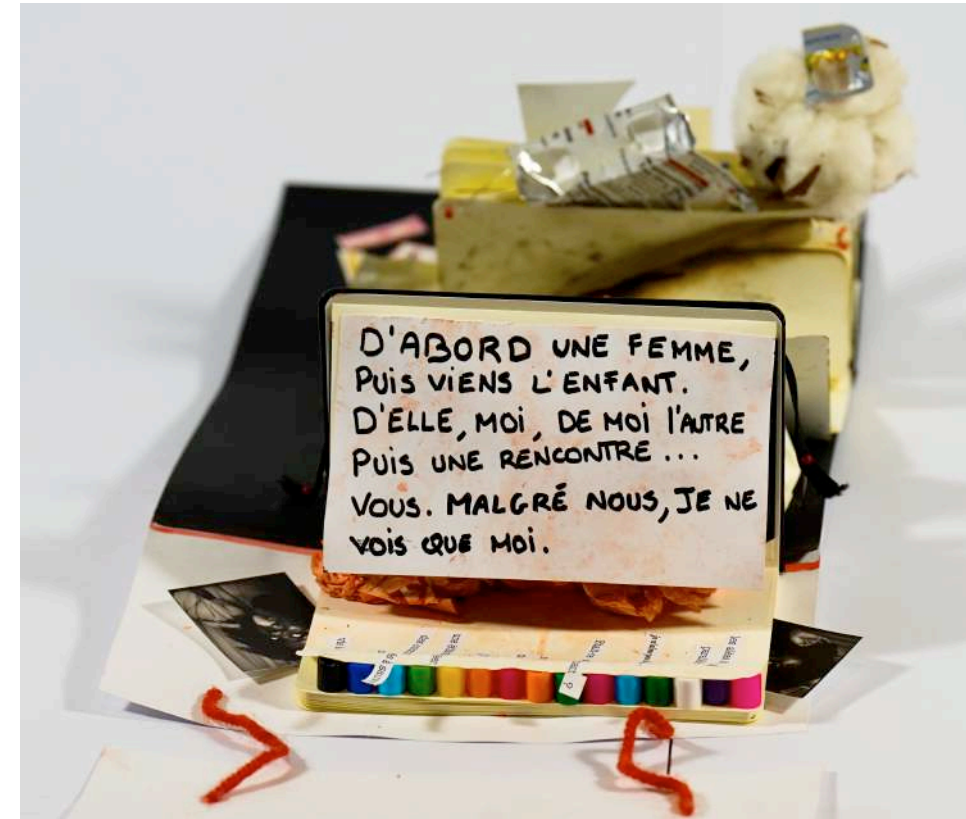 D'ABORD UNE FEMME,
PUIS VIENS L'ENFANT.
D'ELLE, MOI, DE MOI l'AUTRE
PUIS UNE RENCONTRE ...
VOUS. MALGRÉ NOUS, JE NE
VOIS QUE MOI.